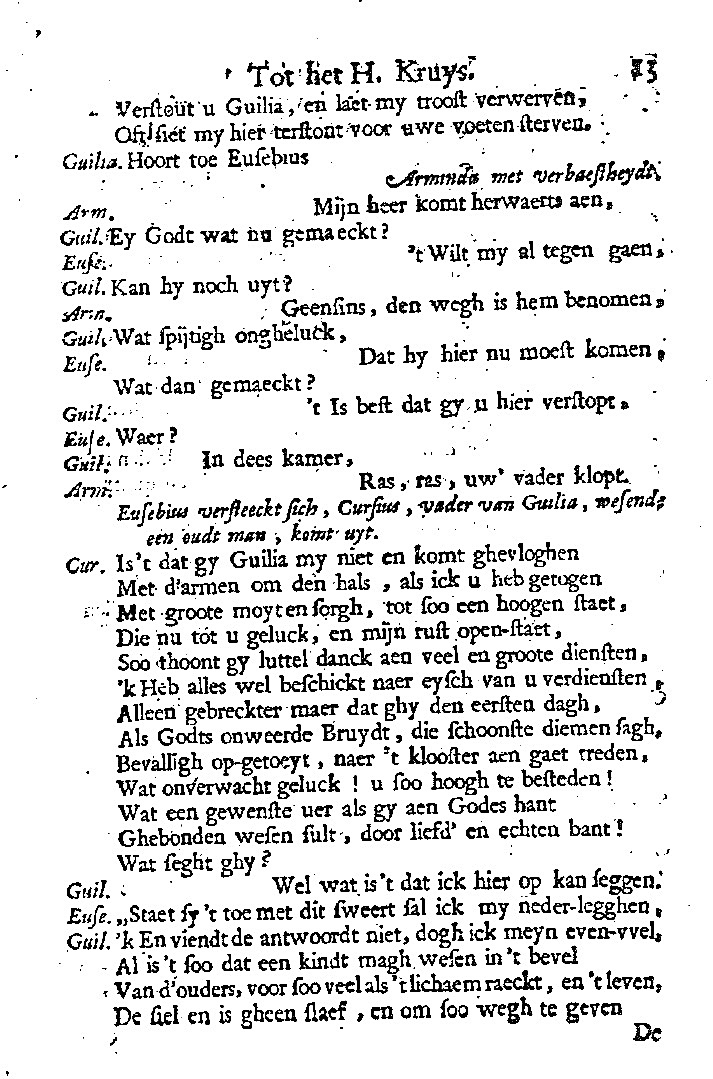 Tot het H. Kruys. 13
Verstout u Guilia, en laet my troost verwerven,
Oft siet my hier terstont voor uwe voeten sterven.
Guilia. Hoort toe Eusebius
Arminda met verbaestheydt.
Arm. Mijn heer komt herwaerts aen,
Guil. Ey Godt wat nu gemaeckt?
Euse. 't Wilt my al tegen gaen,
Guil. Kan hy noch uyt?
Arm. Geensins, den wegh is hem benomen,
Guil. Wat spijtigh ongheluck,
Euse. Dat hy hier nu moest komen,
Wat dan gemaeckt?
Guil. 't Is best dat gy u hier verstopt.
Euse. Waer?
Guil. In dees kamer,
Arm. Ras, ras, uw' vader klopt.
Eusebius versteeckt sich, Cursius, vader van Guilia, wesende
een oudt man, komt uyt.
Cur. Is't dat gy Guilia my niet en komt ghevloghen
Met d'armen om den hals, als ick u heb getogen
Met groote moyt en sorgh, tot soo een hoogen staet,
Die nu tot u geluck, en mijn rust open-staet,
Soo thoont gy luttel danck aen veel en groote diensten,
'k Heb alles wel beschickt naer eysch van u verdiensten,
Alleen gebreckter maer dat ghy den eersten dagh,
Als Godts onweerde Bruydt, die schoonste diemen sagh,
Bevalligh op-getoeyt, naer 't klooster aen gaet treden,
Wat onverwacht geluck ! u soo hoogh te besteden !
Wat een gewenste uer als gy aen Godes hant
Ghebonden wesen sult, door liefd' en echten bant !
Wat seght ghy?
Guil. Wel wat is't dat ick hier op kan seggen.
Euse. „Staet sy 't toe met dit sweert sal ick my neder-legghen,
Guil. 'k En viendt de antwoordt niet, dogh ick meyn even-vvel,
Al is 't soo dat een kindt magh wesen in 't bevel
Van d'ouders, voor soo veel als 't lichaem raeckt, en 't leven,
De siel en is gheen slaef, en om soo wegh te geven
De